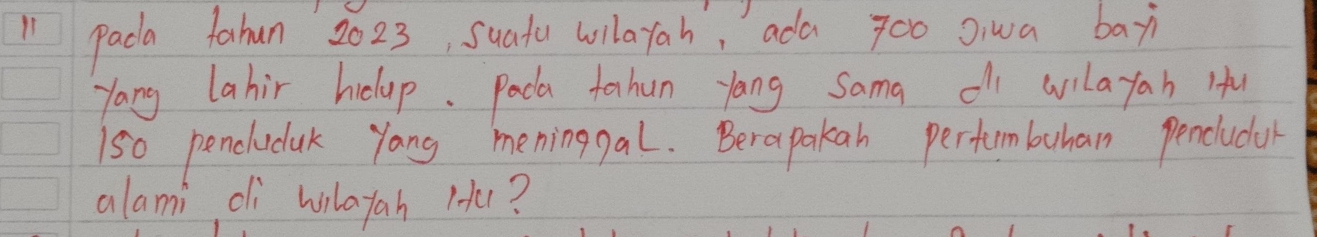 11 pada tahun 2023, suatu wilayah, ada 700 jiwa bayi
yang lahir hidup. pada tahun yang sama di wilayah itu
150 penduduk yang meninggal. Berapakah pertumbuhan penduduk
alami di wilayah itu?